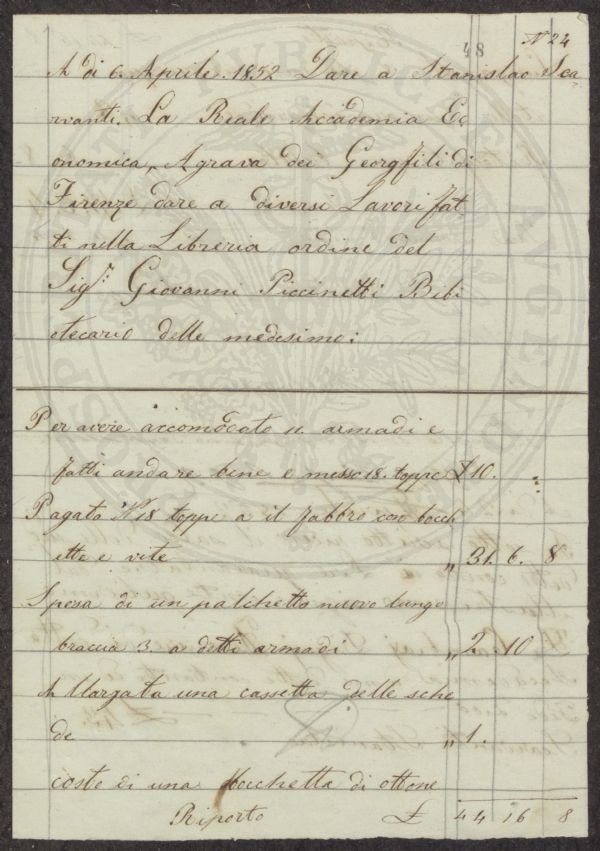 N 24
48
A di 6. Aprile. 1852 Dare a Stanislao Sca
rvanti. La Reale Accademia Ec
onomica, Agrava dei Georgfili di
Firenze dare a diversi Lavori fat
ti nella Libreria ordine del
Sigr: Giovanni Piccinetti Bibi
otecario delle medesimo:
Per avere accomodato 11 armadi e
fatti andare bene e messo 18. toppe £ 10. :
Pagato N 18 toppe a il fabbro con boch
ette e vite „ 31. 6. 8
Spesa di un palchetto nuovo lungo
braccia 3. a detti armadi „ 2. 10
Allargata una cassetta delle sche
de „ 1.
costo di una bocchetta di ottone
Riporto £ 44 16 8